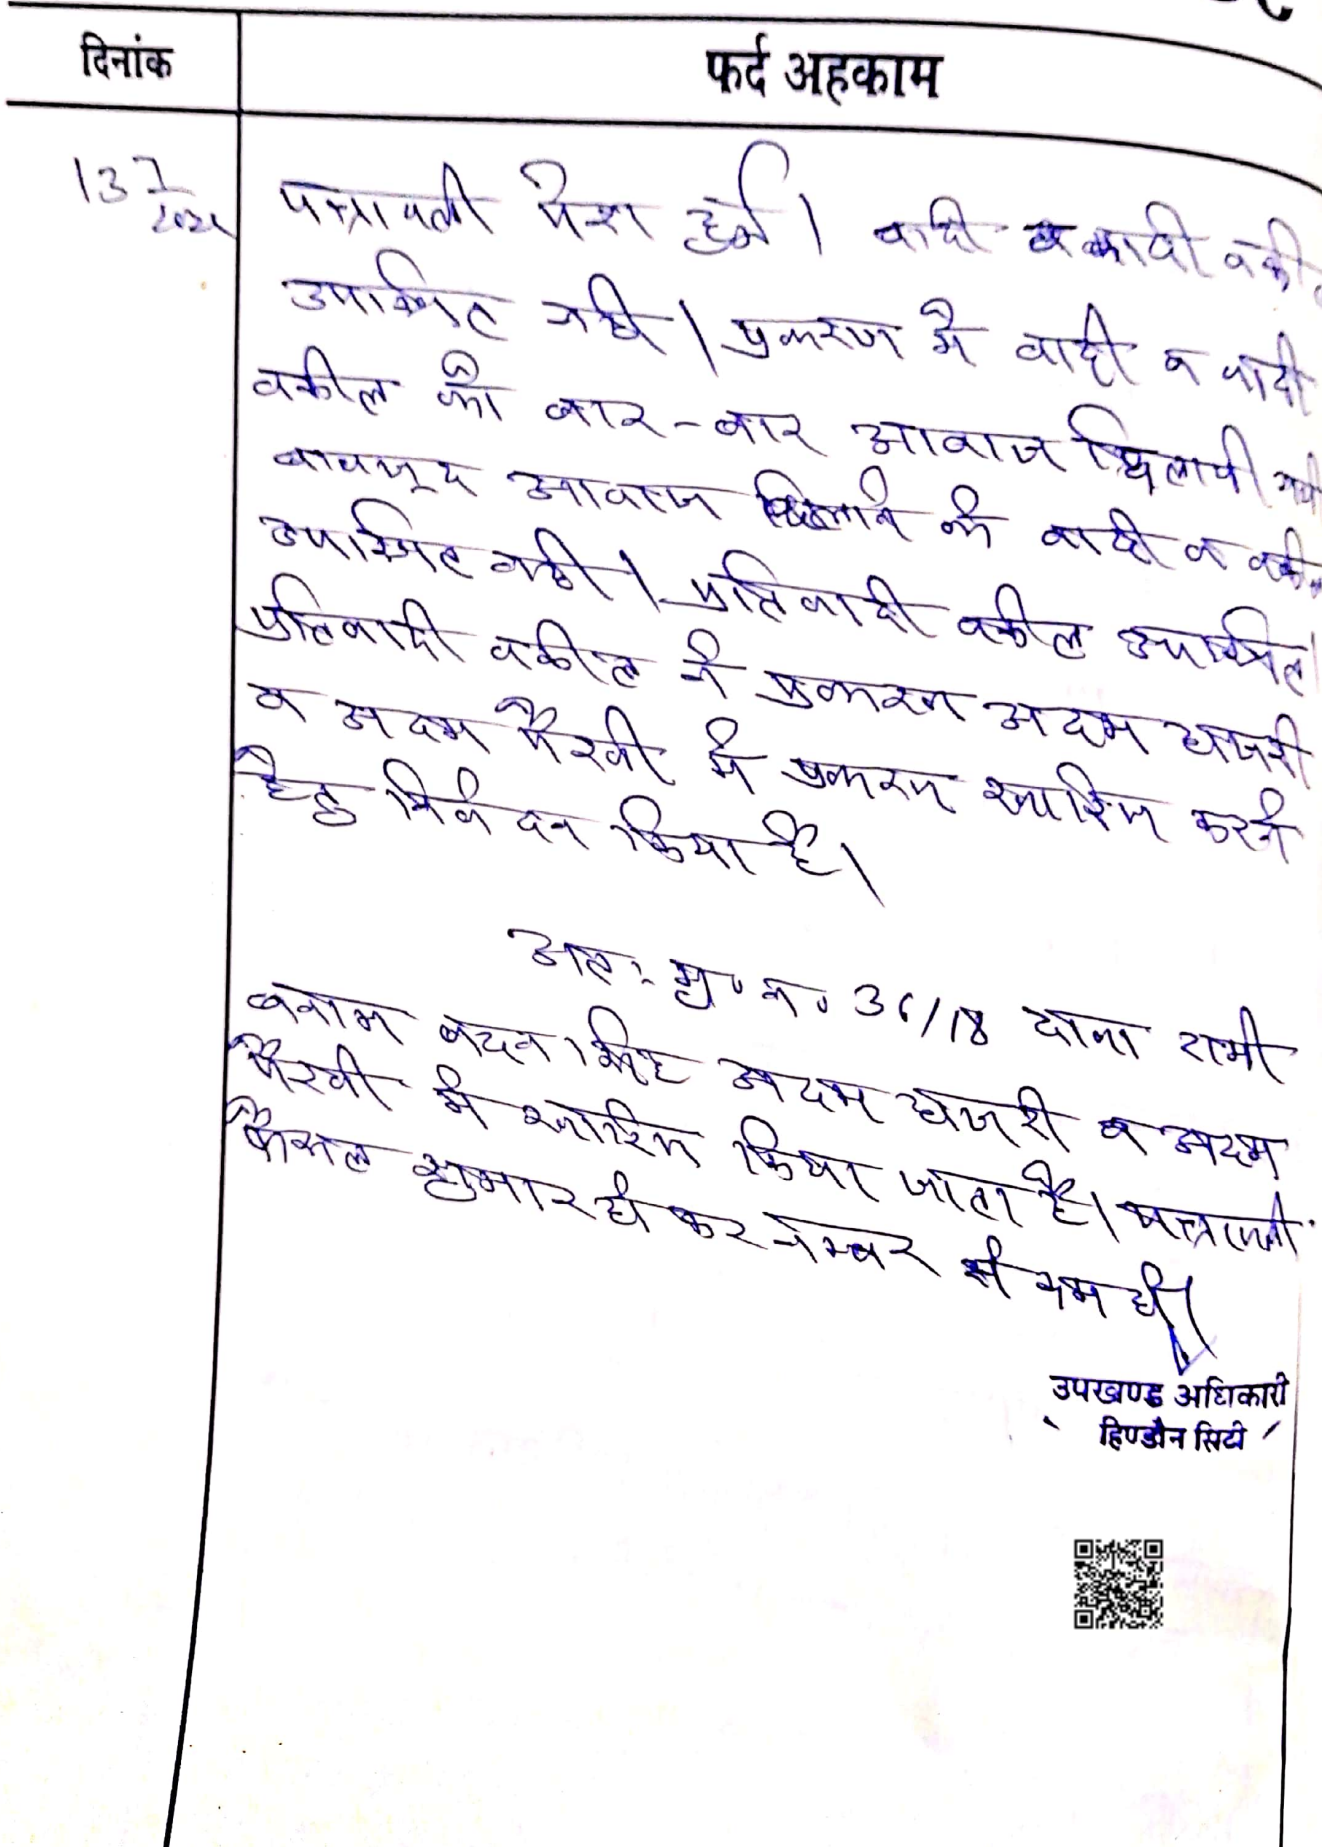 दिनांक फर्द अहकाम
13 7
पत्रावली पेश हुई। वादी व वादी वकी
उपस्थित नही। प्रकरण में वादी व वादी
वकील को बार-बार आवाज दिलायी गयी
बावजूद आवाज दिलाने के वादी व वकील
उपस्थित नही। प्रतिवादी वकील उपस्थित।
प्रतिवादी वकील ने प्रकरण अदम हाजरी
व अदम पैरवी में प्रकरण खारिज करने
हेतु निवेदन किया है।
अतः प्र० न० 36/18 रामी
बनाम बदन सिंह अदम हाजरी व अदम
पैरवी में खारिज किया जाता है। पत्रावली
फैसल शुमार हो कर नम्बर से कम हो।
उपखण्ड अधिकारी
हिण्डौन सिटी